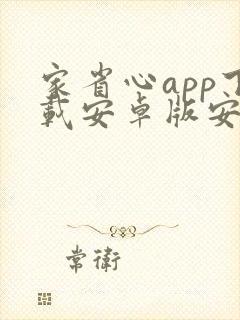 家省心app下
载安卓版安
常衛